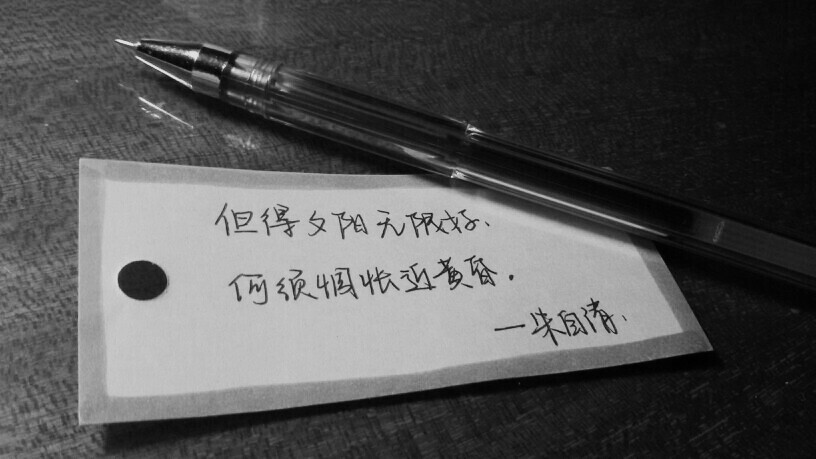 但得夕阳无限好、
何须惆怅近黄昏。
—朱自清、